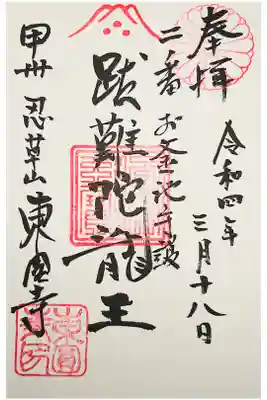 奉拝
令和四年
三月十八日
二番 お釜池守護
跋難陀龍王
甲州 忍草山 東圓寺